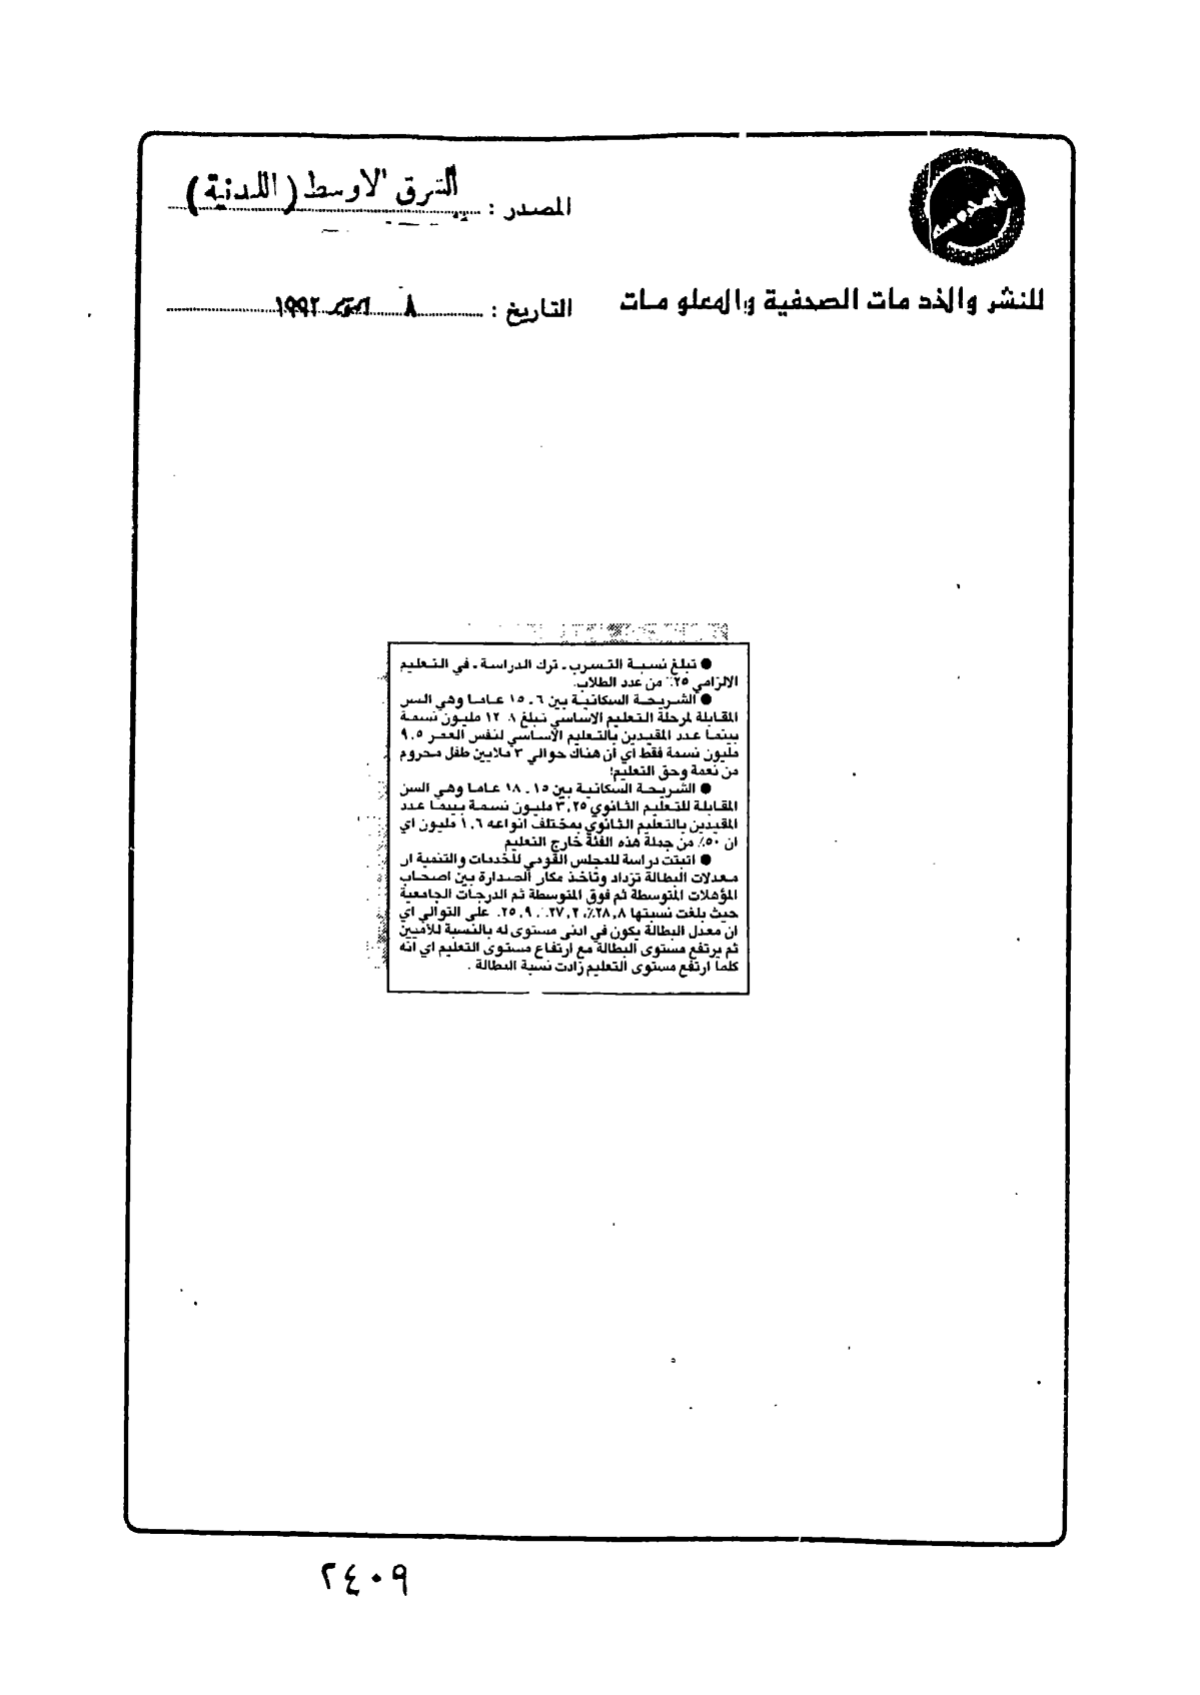 المصدر : الشرق الاوسط (اللندنية)
للنشر والخدمات الصحفية والمعلومات
التاريخ : ٨ اكتوبر ١٩٩٢
● تبلغ نسبة التسرب ـ ترك الدراسة ـ في التعليم
الالزامي ٢٥٪ من عدد الطلاب.
● الشريحة السكانية بين ٦ ـ ١٥ عاما وهي السن
المقابلة لمرحلة التعليم الاساسي تبلغ ١٢,٨ مليون نسمة
بينما عدد المقيدين بالتعليم الاساسي لنفس العمر ٩,٥
مليون نسمة فقط اي ان هناك حوالي ٣ ملايين طفل محروم
من نعمة وحق التعليم!
● الشريحة السكانية بين ١٥ ـ ١٨ عاما وهي السن
المقابلة للتعليم الثانوي ٣,٢٥ مليون نسمة بينما عدد
المقيدين بالتعليم الثانوي بمختلف انواعه ١,٦ مليون اي
ان ٥٠٪ من جملة هذه الفئة خارج التعليم
● اثبتت دراسة للمجلس القومي للخدمات والتنمية ان
معدلات البطالة تزداد وتأخذ مكان الصدارة بين اصحاب
المؤهلات المتوسطة ثم فوق المتوسطة ثم الدرجات الجامعية
حيث بلغت نسبتها ٢٨,٨٪، ٢٧,٢٪، ٢٥,٩٪ على التوالي اي
ان معدل البطالة يكون في ادنى مستوى له بالنسبة للأميين
ثم يرتفع مستوى البطالة مع ارتفاع مستوى التعليم اي انه
كلما ارتفع مستوى التعليم زادت نسبة البطالة .
٢٤٠٩